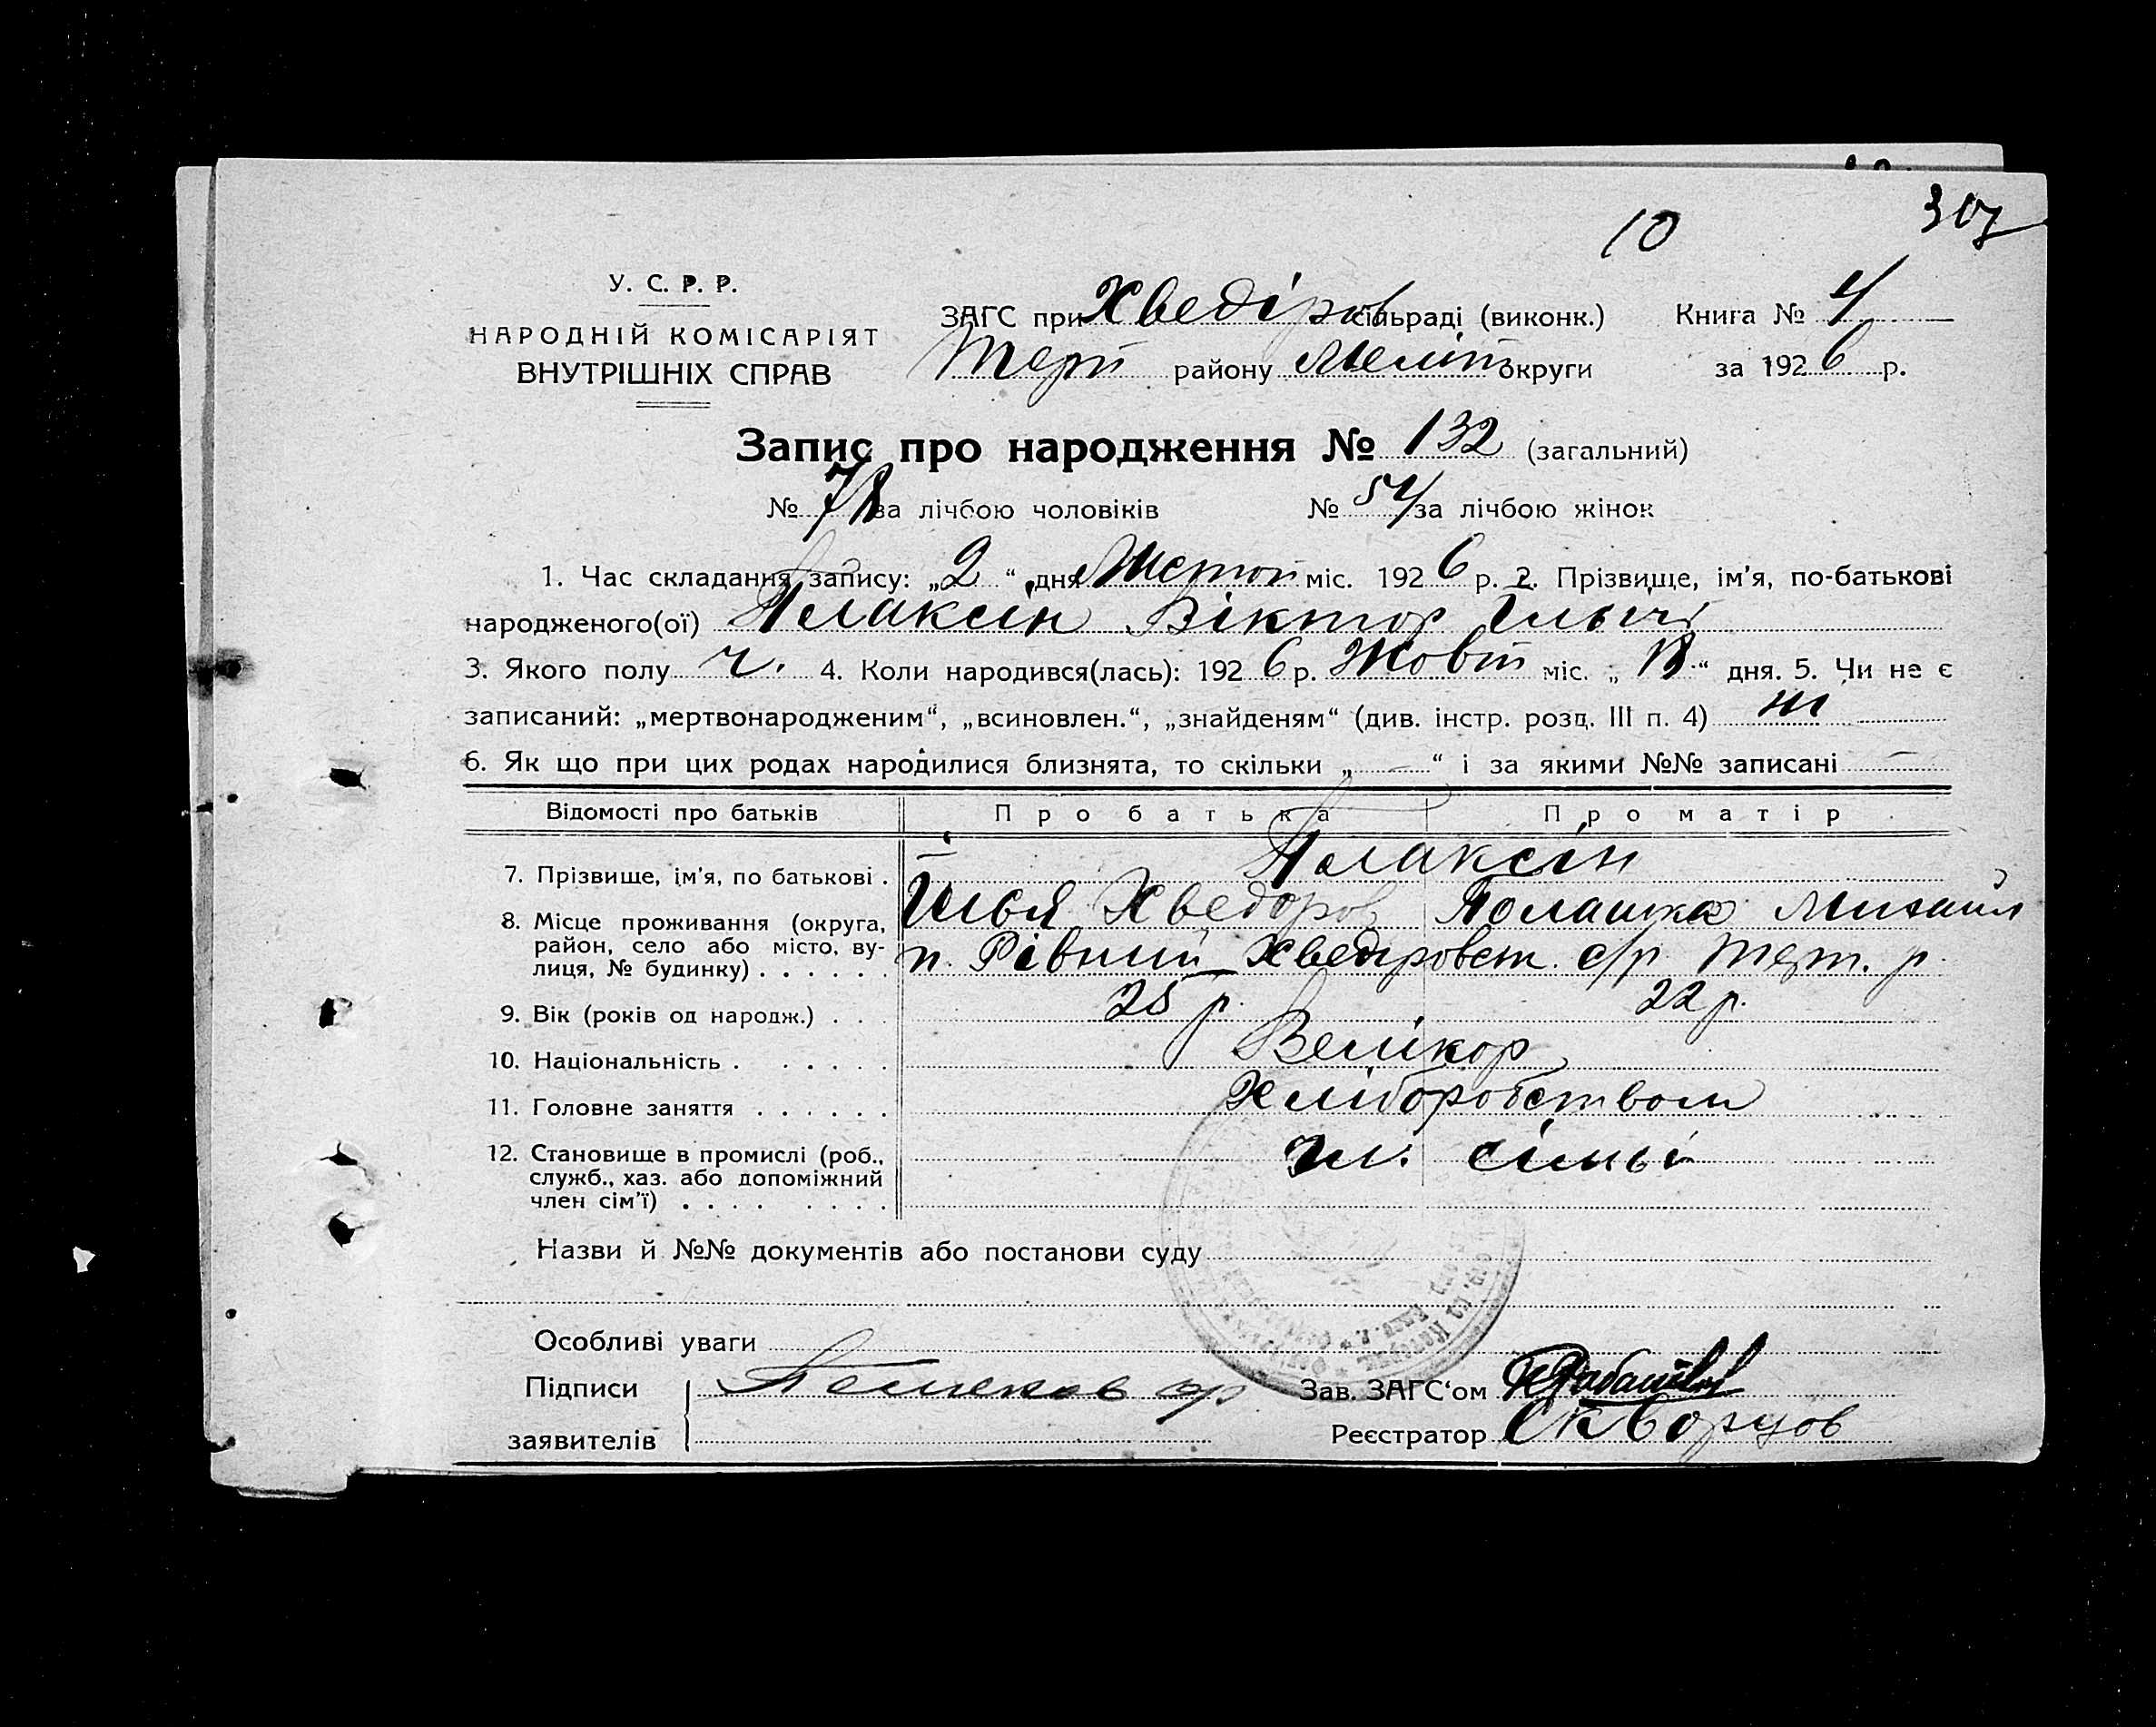 10 307
У. С. Р. Р.
НАРОДНІЙ КОМІСАРІЯТ
ВНУТРІШНІХ СПРАВ
ЗАГС при Хведіров сільраді (виконк.) Книга № 4
Терп району Меліт округи за 1926 р.
Запис про народження № 132 (загальний)
№ 78 за лічбою чоловіків № 54 за лічбою жінок
1. Час складання запису: „2“ дня Листоп міс. 1926 р. 2. Прізвище, ім'я, по-батькові
народженого(ої) Плаксін Віктор Ільіч
3. Якого полу ч. 4. Коли народився(лась): 1926 р. Жовт міс. „ “ дня. 5. Чи не є
записаний: „мертвонародженим“, „всиновлен.“, „знайденям“ (див. інстр. розд. III п. 4) ні
6. Як що при цих родах народилися близнята, то скільки „ — “ і за якими №№ записані —
Відомості про батьків Про батька Про матір
7. Прізвище, ім'я, по батькові . Плаксін
Ілья Хведоров Полашка Михаил
8. Місце проживання (округа,
район, село або місто, вулиця, № будинку) . . . . . . п. Рівний Хведіровск. с/р Терп. р.
9. Вік (років од народж.) . . . 25 р. 22 р.
10. Національність . . . . . . Велікор
11. Головне заняття . . . . . . Хліборобством
12. Становище в промислі (роб., чл. сімьі
служб., хаз. або допоміжний
член сім'ї) . . . . . . . .
Назви й №№ документів або постанови суду
Особливі уваги
Підписи Зав. ЗАГС‘ом
заявителів Реєстратор Скворцов